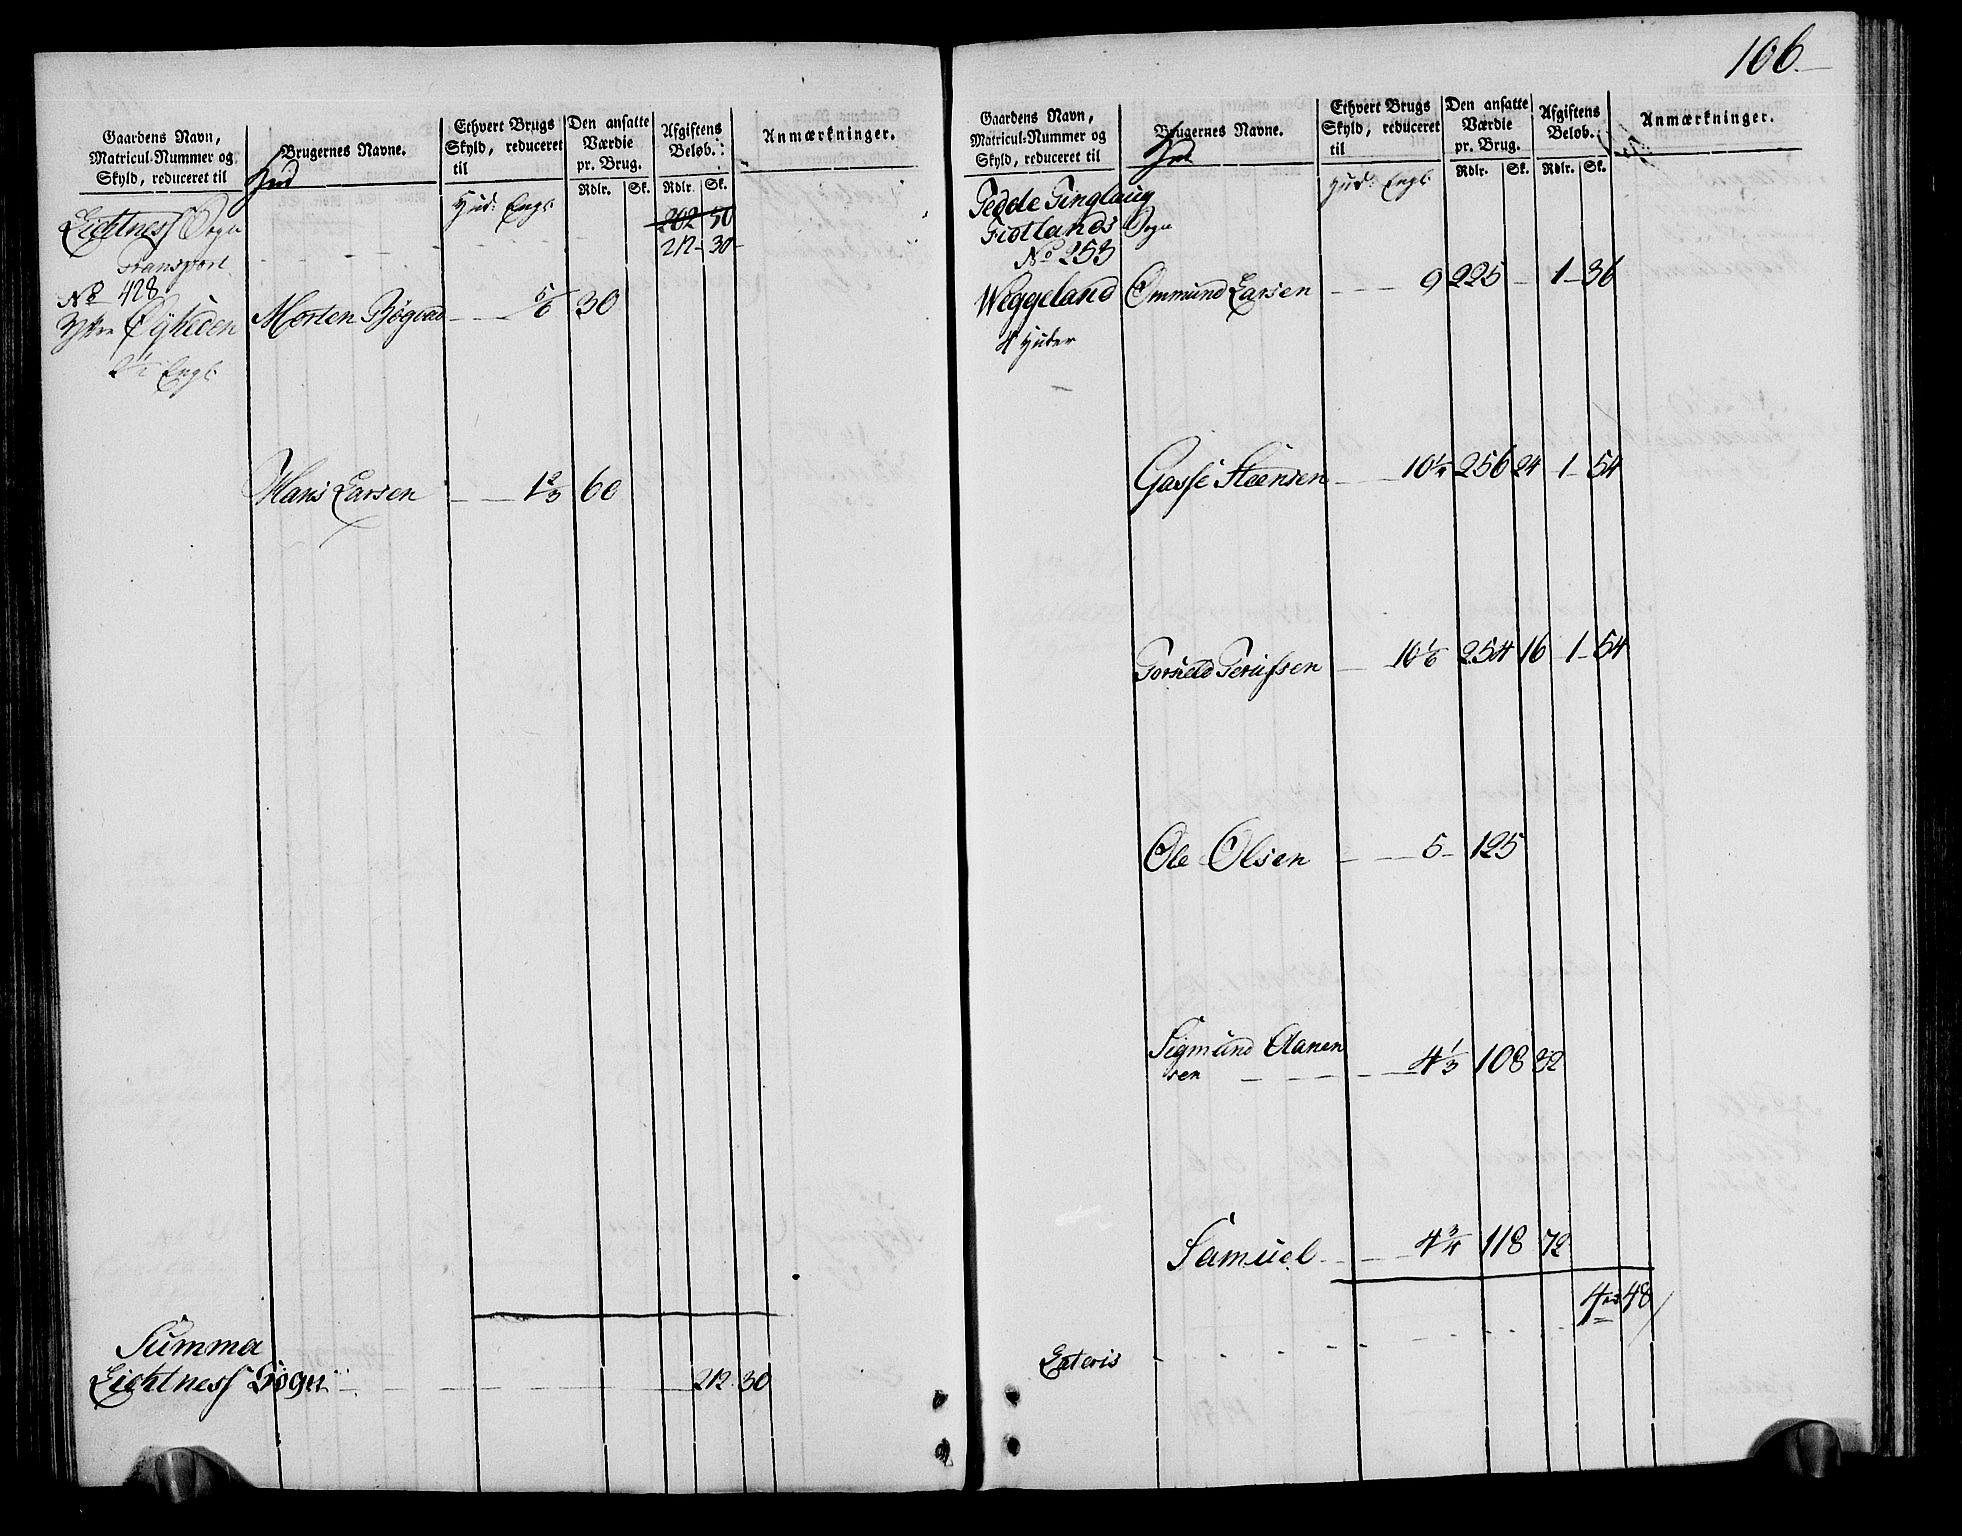 106.
Gaardens Navn, Matricul-Nummer og Skyld, reduceret til
Brugernes Navne.
Ethvert Brugs Skyld, reduceret til
Den ansatte Værdie pr. Brug.
Afgiftens Beløb.
Anmærkninger.
Hud
Rdlr. Sk. Rdlr. Sk.
Hud: Engl:
Lichtness Sogn 202 30
Transport 212 - 30 -
No 428
Yttre Øyheden Morten Bøgvad 5/6 30
2 1/2 Engl:
Hans Larsen 1 2/3 60
Summa
Lichtness Sogn 212 30
Gaardens Navn, Matricul-Nummer og Skyld, reduceret til
Brugernes Navne.
Ethvert Brugs Skyld, reduceret til
Den ansatte Værdie pr. Brug.
Afgiftens Beløb.
Anmærkninger.
Hud
Rdlr. Sk. Rdlr. Sk.
Hud: Engl:
Fedde Tinglaug
Fiotlands Sogn
No 253
Weggeland Ommund Larsen 9 225 - 1 - 36
4 Huder
Gasse Steensen 10 1/4 256 24 1 - 54
Torkield Terufsen 10 1/6 254 16 1 - 54
Ole Olsen 5 - 125
Sigmund Aanen
sen 4 1/3 108 32
Samuel 4 3/4 118 72
4 48
Lateris